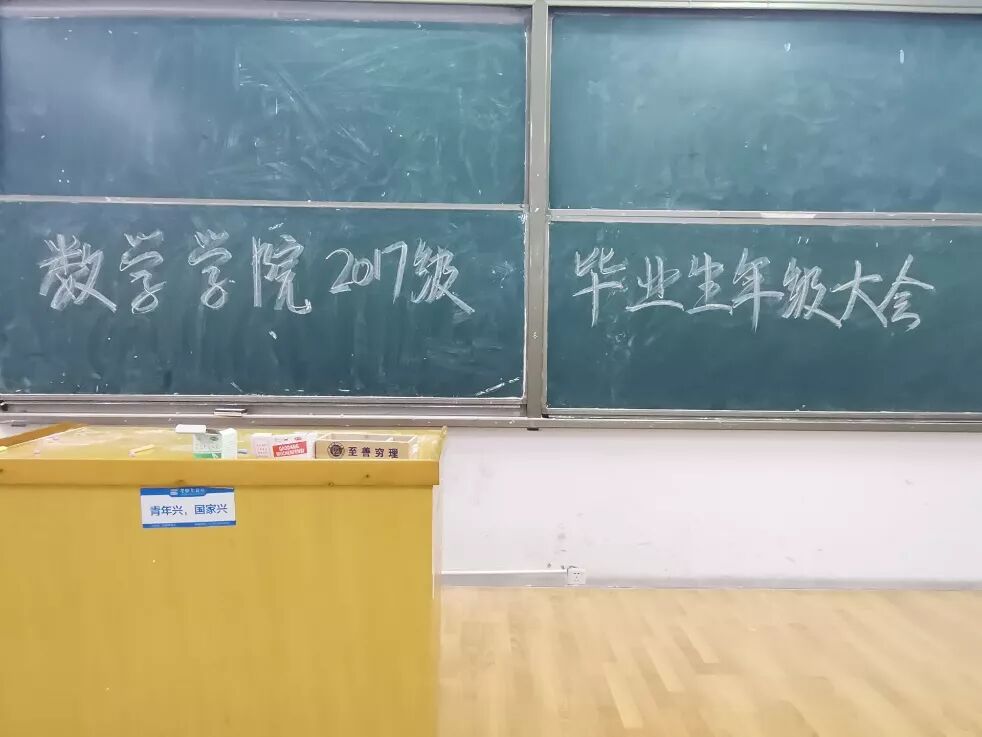 数学学院2017级 毕业生年级大会
至善穷理
青年兴，国家兴